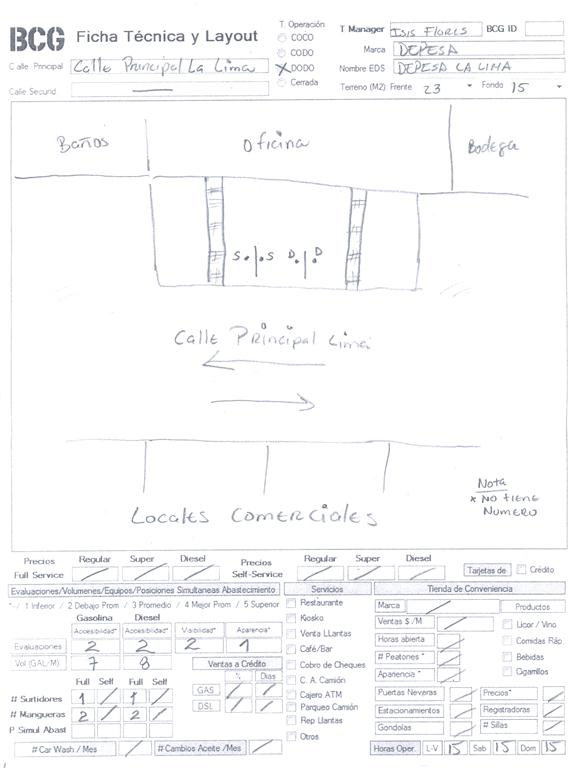 BCG Ficha Técnica y Layout
T. Operación
COCO
CODO
DODO
Cerrada
T Manager Isis Flores BCG ID
Marca DEPESA
Nombre EDS DEPESA LA LIMA
Terreno (M2): Frente 23 Fondo 15
Calle Principal Calle Principal La Lima
Calle Secund.
Baños Oficina Bodega
S. .S D. .D
Calle Principal Lima
Nota
* NO TIENE
NUMERO
LOCALES COMERCIALES
Precios Regular Super Diesel Precios Regular Super Diesel
Full Service Self-Service Tarjetas de Crédito
Evaluaciones/Volumenes/Equipos/Posiciones Simultaneas Abastecimiento
*-/ 1 Inferior / 2 Debajo Prom / 3 Promedio / 4 Mejor Prom / 5 Superior
Gasolina Diesel
Accesibilidad* Accesibilidad* Visibilidad* Aparencia*
Evaluaciones 2 2 2 1
Vol (GAL/M) 7 8
Ventas a Crédito
% Dias
GAS
DSL
Full Self Full Self
# Surtidores 1 1
# Mangueras 2 2
P Simul Abast
# Car Wash / Mes # Cambios Aceite /Mes
Servicios
Restaurante
Kiosko
Venta LLantas
Café/Bar
Cobro de Cheques
C. A. Camión
Cajero ATM
Parqueo Camión
Rep Llantas
Otros
Tienda de Conveniencia
Marca
Ventas $ /M
Horas abierta
# Peatones *
Aparencia *
Productos
Licor / Vino
Comidas Ráp
Bebidas
Cigarrillos
Puertas Neveras Precios*
Estacionamientos Registradoras
Gondolas # Sillas
Horas Oper. L-V 15 Sab 15 Dom 15